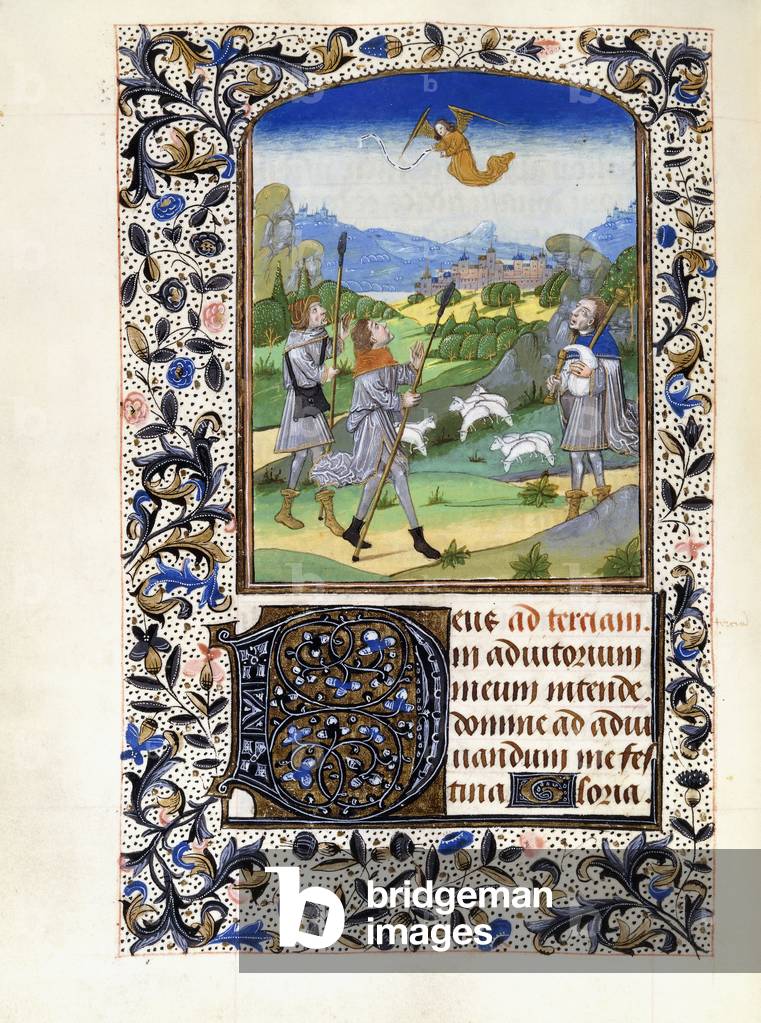 Deus ad terciam.
in adiutorium
meum intende.
domine ad adiu
uandum me fes
tina Gloria.
bridgeman
images